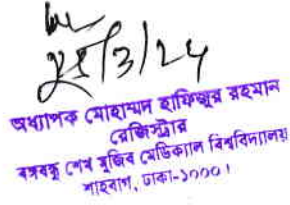 ২৪/3/24
অধ্যাপক মোহাম্মদ হাফিজুর রহমান
রেজিস্ট্রার
বঙ্গবন্ধু শেখ মুজিব মেডিক্যাল বিশ্ববিদ্যালয়
শাহবাগ, ঢাকা-১০০০।